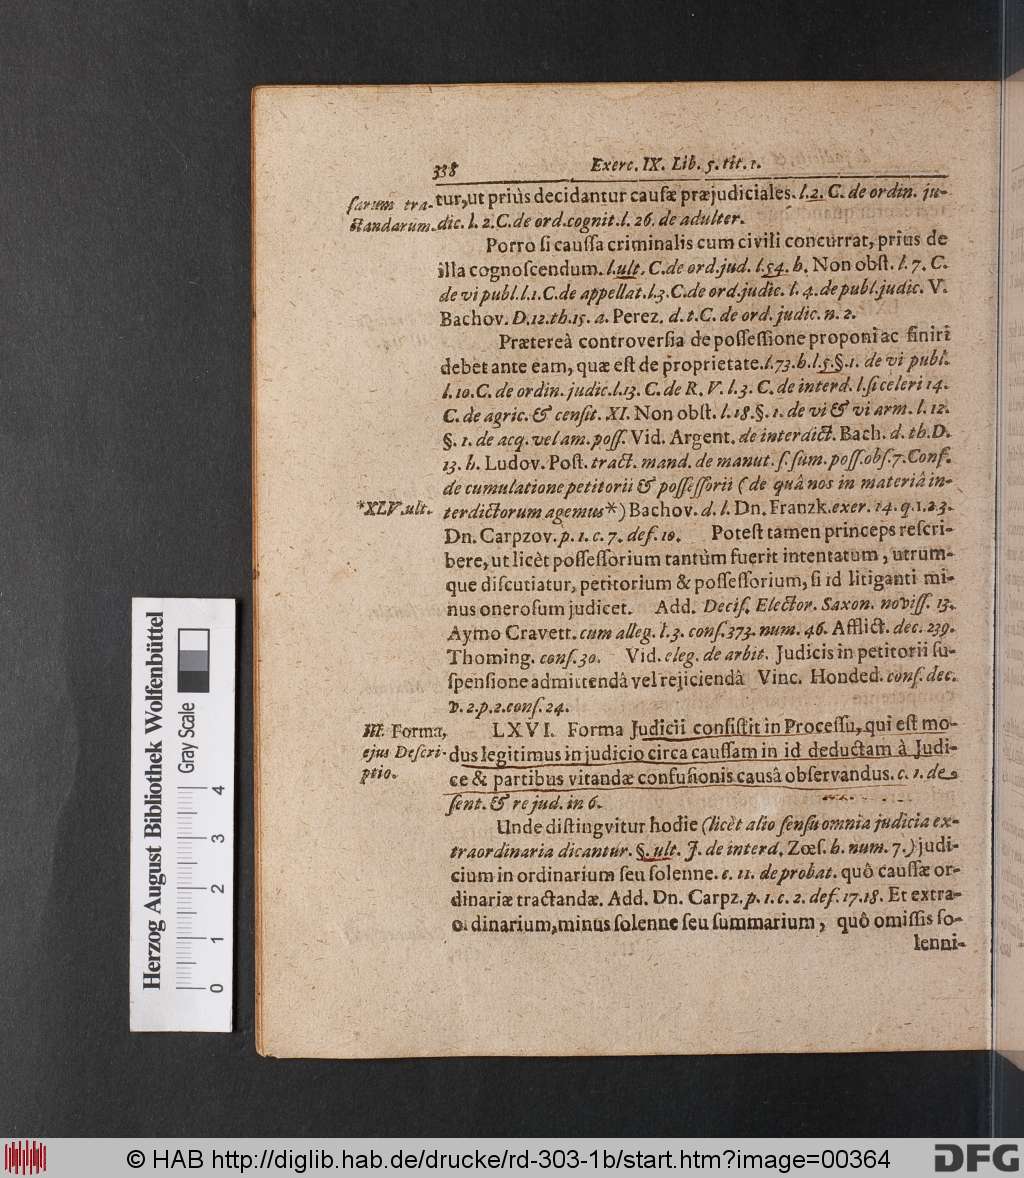 338 Exerc. IX. Lib. 5. tit. 1.
sarum tra-
ctandarum.
tur, ut priùs decidantur causæ præjudiciales. l. 2. C. de ordin. ju-
dic. l. 2. C. de ord. cognit. l. 26. de adulter.
Porro si caussa criminalis cum civili concurrat, priùs de
illa cognoscendum. l. ult. C. de ord. jud. l. 54. h. Non obst. l. 7. C.
de vi publ. l. 1. C. de appellat. l. 3. C. de ord. judic. l. 4. de publ. judic. V.
Bachov. D. 12. th. 15. a. Perez. d. t. C. de ord. judic. n. 2.
Prætereà controversia de possessione proponi ac finiri
debet ante eam, quæ est de proprietate. l. 73. h. l. 5. §. 1. de vi publ.
l. 10. C. de ordin. judic. l. 13. C. de R. V. l. 3. C. de interd. l. si celeri 14.
C. de agric. & censit. XI. Non obst. l. 18. §. 1. de vi & vi arm. l. 12.
§. 1. de acq. vel am. poss. Vid. Argent. de interdict. Bach. d. th. D.
13. h. Ludov. Post. tract. mand. de manut. s. sum. poss. obs. 7. Conf.
de cumulatione petitorii & possessorii (de quâ nos in materiâ in-
*XLV. ult.
terdictorum agemus*) Bachov. d. l. Dn. Franzk. exer. 14. q. 1. 2. 3.
Dn. Carpzov. p. 1. c. 7. def. 10. Potest tamen princeps rescri-
bere, ut licèt possessorium tantùm fuerit intentatum, utrum-
que discutiatur, petitorium & possessorium, si id litiganti mi-
nus onerosum judicet. Add. Decis. Elector. Saxon. noviss. 13.
Aymo Cravett. cum alleg. l. 3. cons. 373. num. 46. Afflict. dec. 239.
Thoming. cons. 30. Vid. eleg. de arbit. Judicis in petitorii su-
spensione admittendâ vel rejiciendâ Vinc. Honded. cons. dec.
v. 2. p. 2. cons. 24.
III. Forma,
ejus Descri-
ptio.
LXVI. Forma Judicii consistit in Processu, qui est mo-
dus legitimus in judicio circa caussam in id deductam à Judi-
ce & partibus vitandæ confusionis causâ observandus. c. 1. de
sent. & re jud. in 6.
Unde distingvitur hodie (licèt alio sensu omnia judicia ex-
traordinaria dicantur. §. ult. J. de interd. Zœs. h. num. 7.) judi-
cium in ordinarium seu solenne. c. 11. de probat. quô caussæ or-
dinariæ tractandæ. Add. Dn. Carpz. p. 1. c. 2. def. 17. 18. Et extra-
ordinarium, minus solenne seu summarium, quô omissis so-
lenni-
Herzog August Bibliothek Wolfenbüttel
Gray Scale
0 1 2 3 4
© HAB http://diglib.hab.de/drucke/rd-303-1b/start.htm?image=00364
DFG